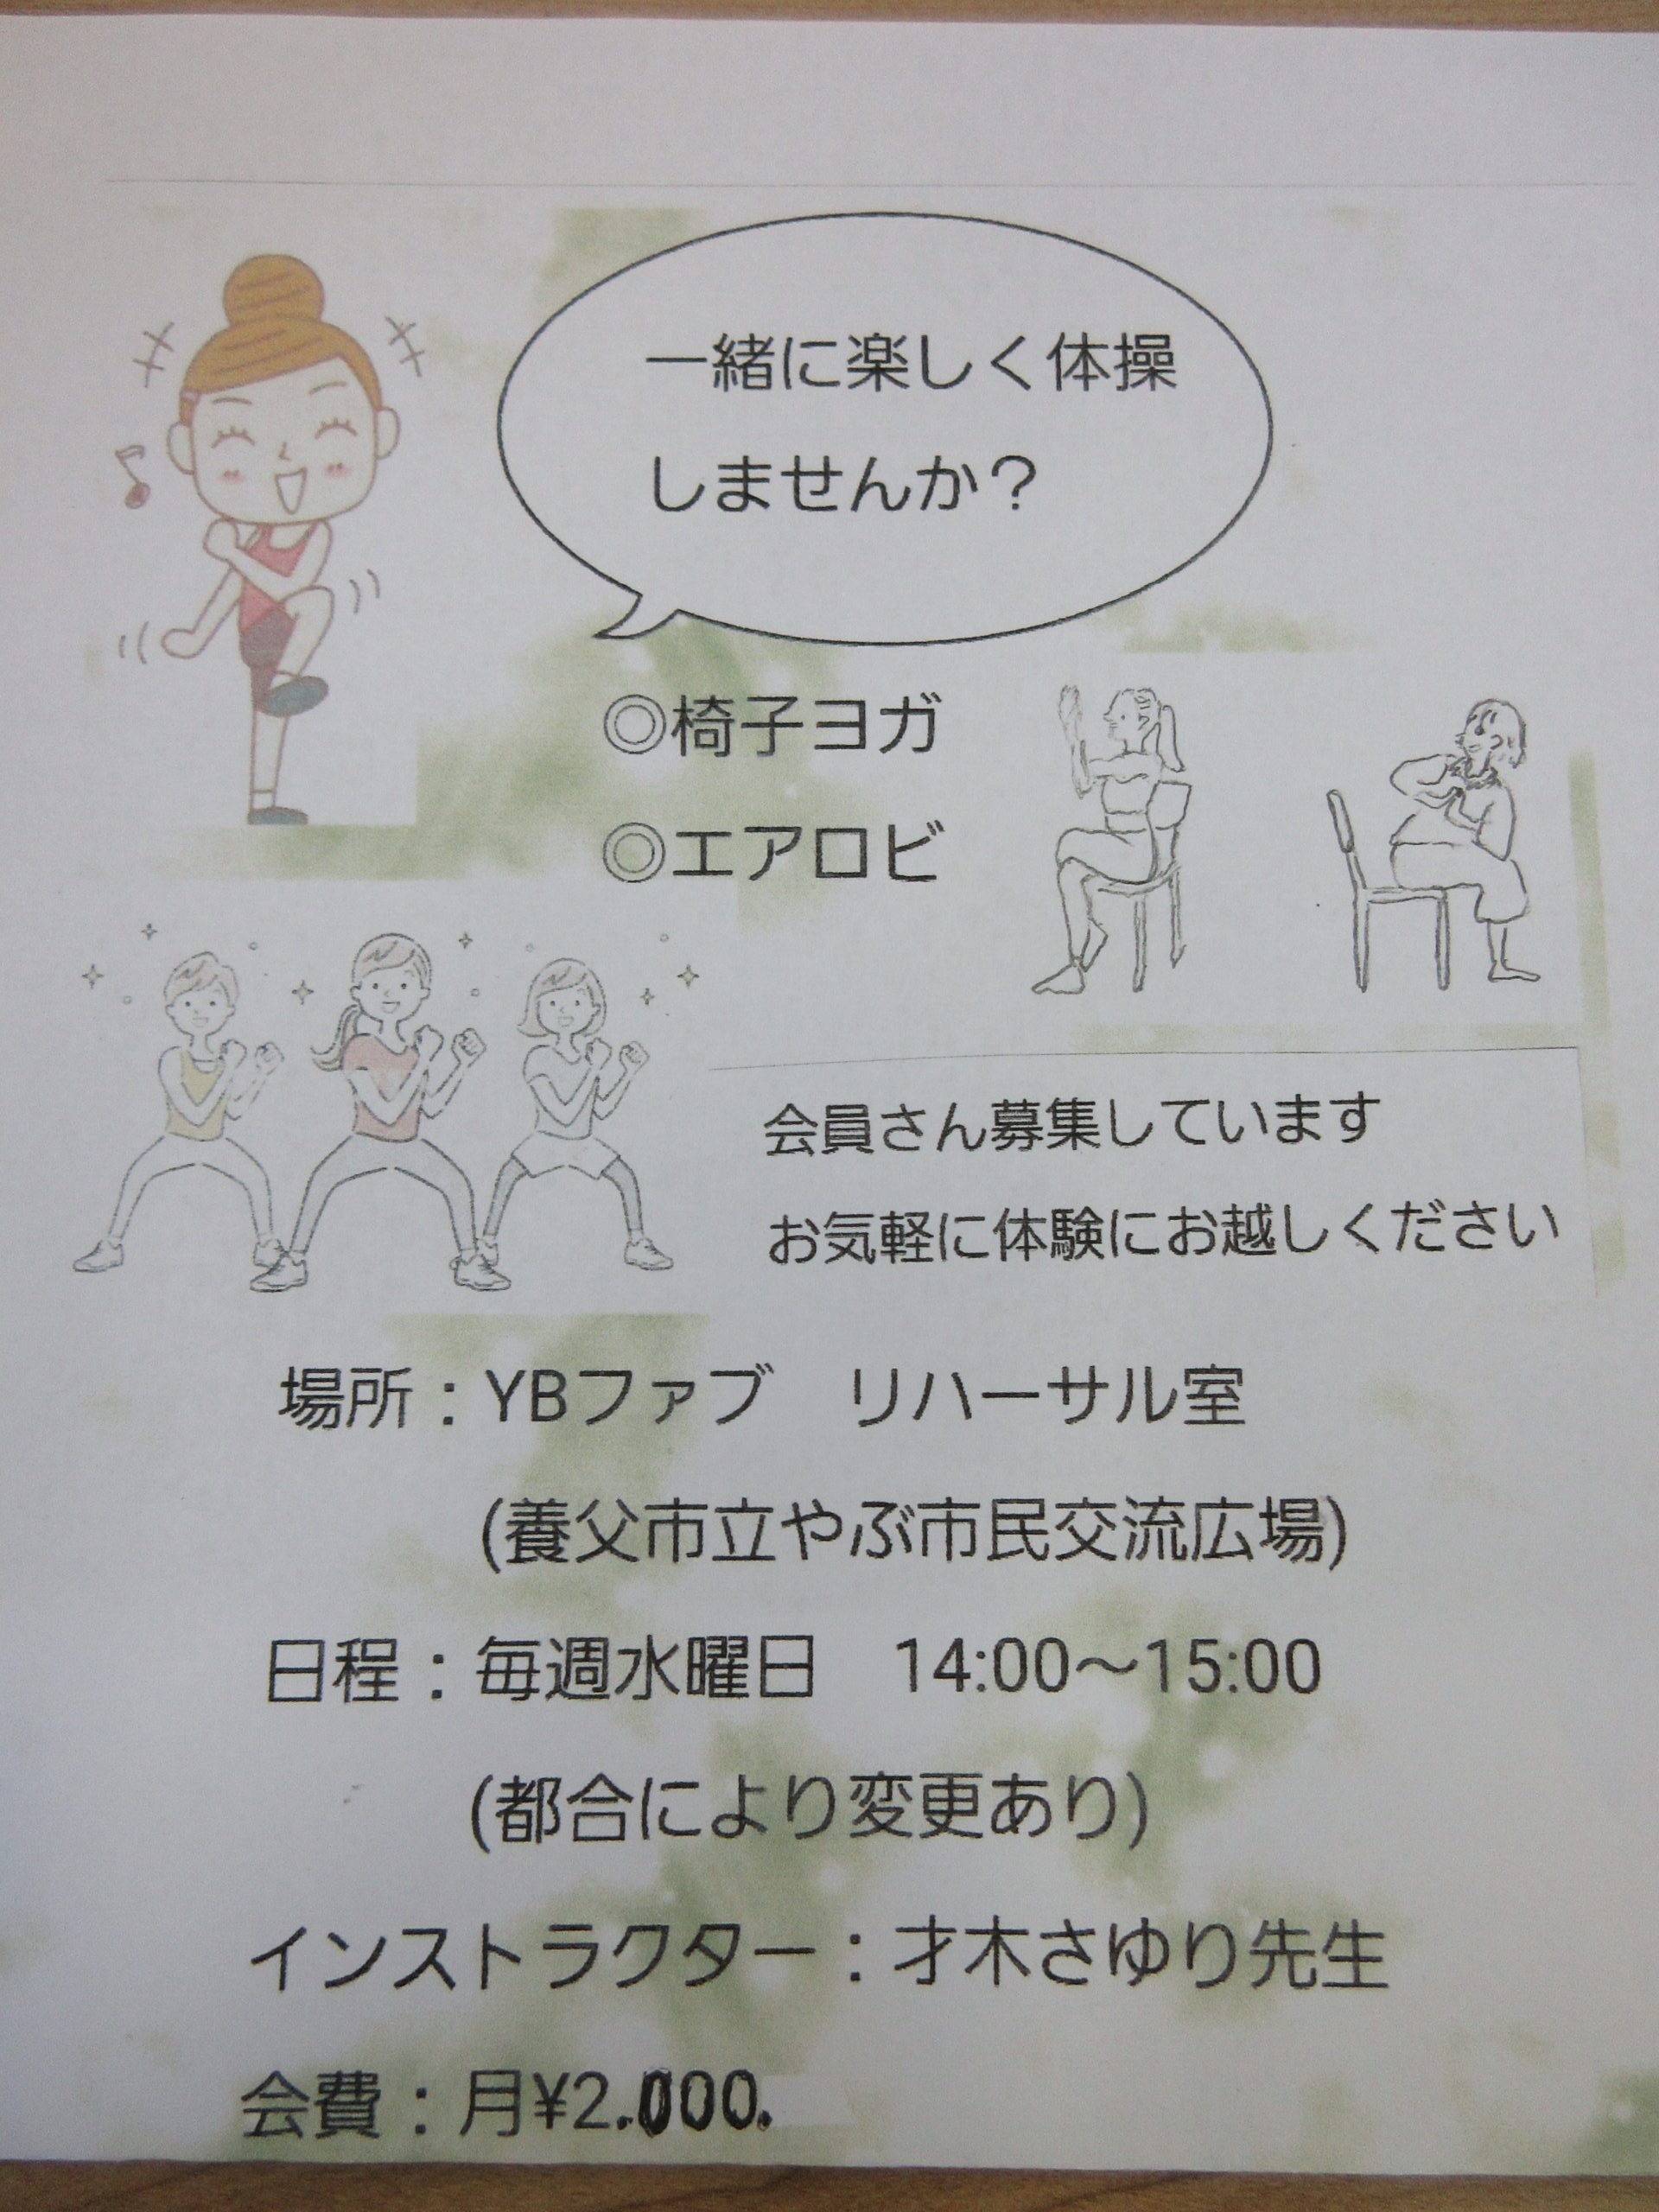 一緒に楽しく体操
しませんか？
◎椅子ヨガ
◎エアロビ
会員さん募集しています
お気軽に体験にお越しください
場所：YBファブ　リハーサル室
(養父市立やぶ市民交流広場)
日程：毎週水曜日　14:00～15:00
(都合により変更あり)
インストラクター：才木さゆり先生
会費：月¥2.000.